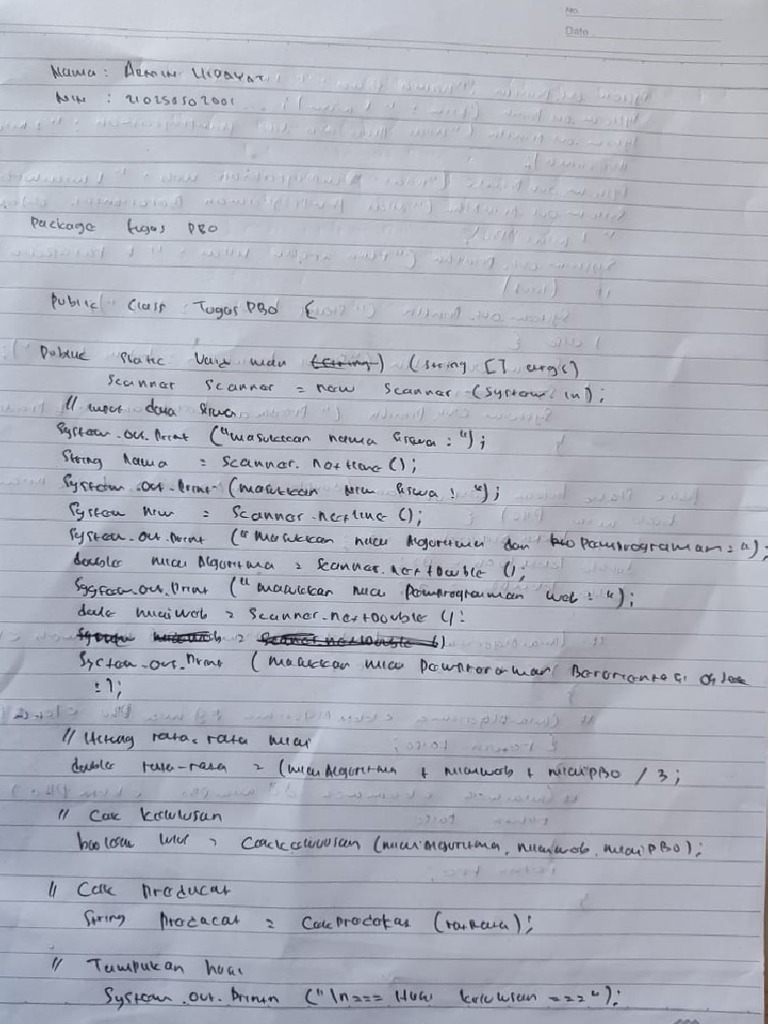 No.
Date
Nama :
Nim : 210250502001
Package tugas PBO
Public class Tugas PBO {
Public static void main (string) (string [] args)
Scanner Scanner = new Scanner (System. in);
// input data siswa
System.out.Print ("masukkan nama siswa : ");
String nama = Scanner. nextline ();
System.out.Print (masukkan nim siswa : ");
System nim = Scanner.nextline ();
System.out.Print ("Masukkan nilai Algoritma dan Pemprograman = ");
double nilai Algoritma = Scanner.nextdouble ();
System.out.Print ("masukkan nilai Pemprograman web : ");
nilaiweb = Scanner.nextdouble ():
nilaiweb = Scanner.nextdouble ()
System.out.Print ( masukkan nilai Berorientasi
: );
// Hitung rata-rata nilai
double rata-rata = (nilaiAlgoritma + nilaiweb + nilaiPBO / 3;
// Cek kelulusan
boolean lulus = (nilaiAlgoritma, nilaiweb, nilaiPBO);
// Cek
String = (ratarata);
// hasil
System.out. ("\n=== Hasil kelulusan ===");